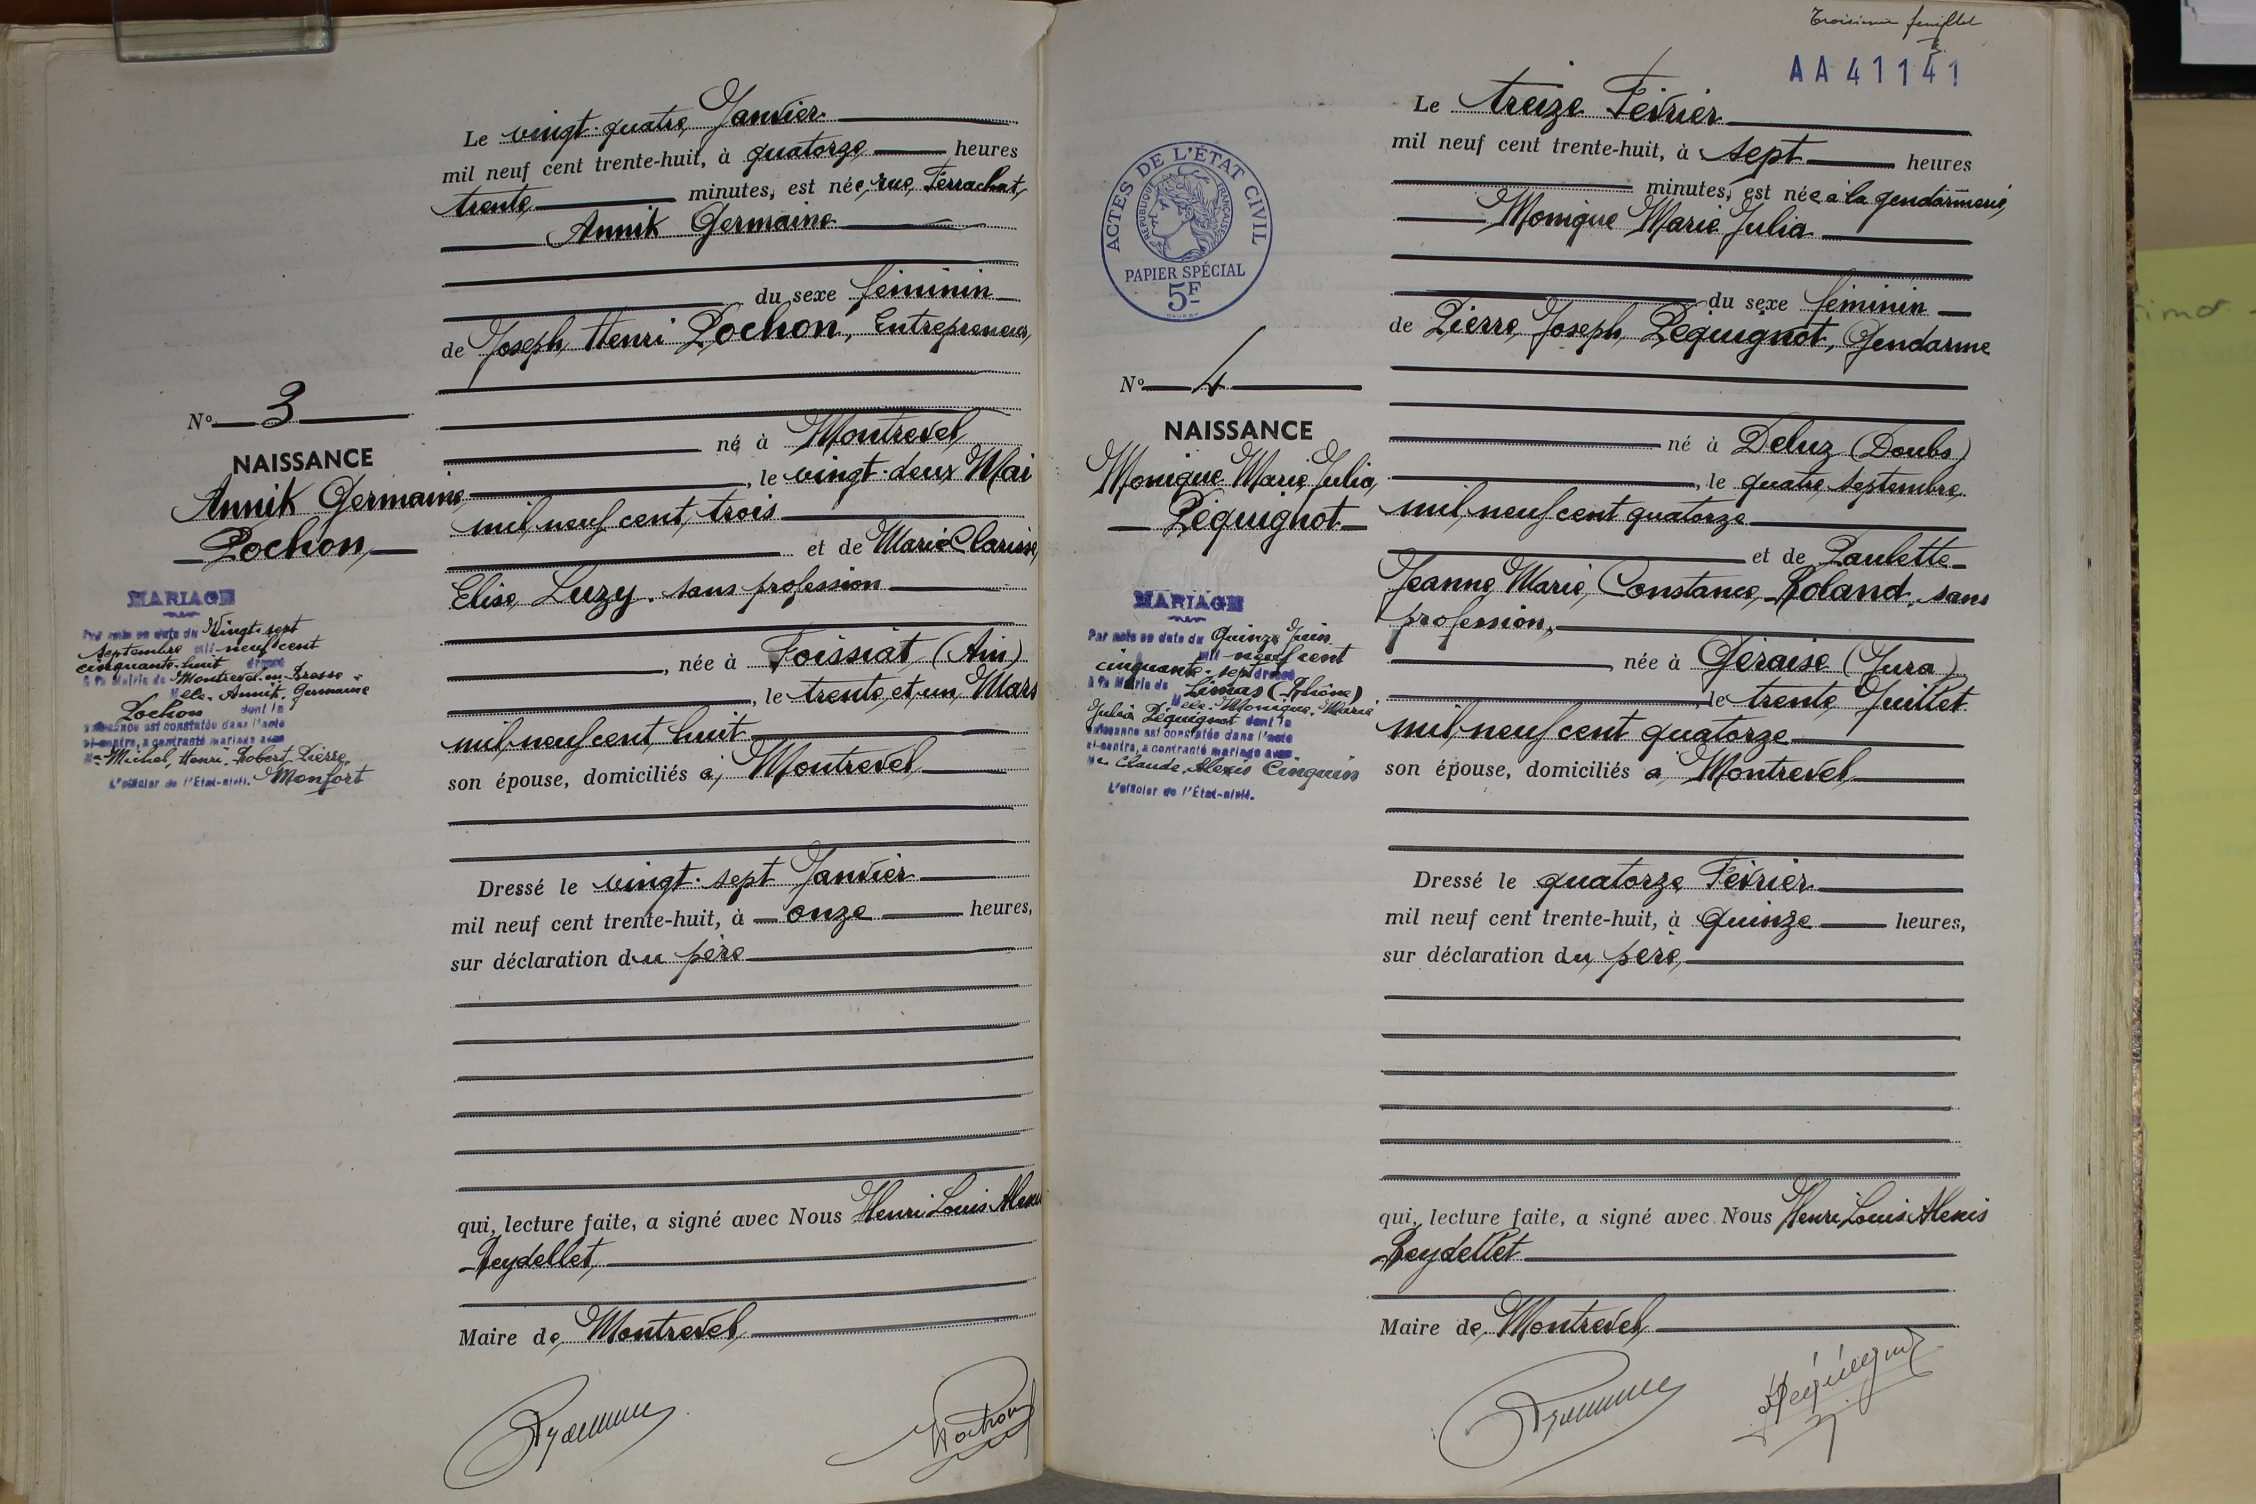 Le vingt-quatre Janvier
mil neuf cent trente-huit, à quatorze heures
trente minutes, est née, rue Ferrachat,
Annik Germaine
du sexe féminin
de Joseph Henri Pochon, Entrepreneur,
né à Montrevel
, le vingt-deux Mai
mil neuf cent trois
et de Marie Clarisse
Elise Luzy, sans profession
, née à Foissiat (Ain)
, le trente et un Mars
mil neuf cent huit
son épouse, domiciliés à Montrevel
Dressé le vingt-sept Janvier
mil neuf cent trente-huit, à onze heures,
sur déclaration du père
qui, lecture faite, a signé avec Nous Henri Louis Alexis
Reydellet,
Maire de Montrevel
No 3
NAISSANCE
Annik Germaine
Pochon
MARIAGE
Par acte en date du Vingt-sept
septembre mil neuf cent
cinquante-huit dressé
à la Mairie de Montrevel-en-Bresse
Melle Annik Germaine
Pochon dont la
naissance est constatée dans l'acte
ci-contre, a contracté mariage avec
Mr Michel, Henri, Robert, Pierre
L'officier de l'Etat-civil. Monfort
Troisième feuillet
AA41141
Le treize Février
mil neuf cent trente-huit, à sept heures
minutes, est née à la gendarmerie,
Monique Marie Julia
du sexe féminin
de Pierre Joseph Péquignot, Gendarme
né à Deluz (Doubs)
, le quatre septembre
mil neuf cent quatorze
et de Paulette
Jeanne Marie Constance Roland, sans
profession,
née à Géraise (Jura)
le trente Juillet
mil neuf cent quatorze
son épouse, domiciliés à Montrevel
Dressé le quatorze Février
mil neuf cent trente-huit, à quinze heures,
sur déclaration du père,
qui, lecture faite, a signé avec Nous Henri Louis Alexis
Reydellet
Maire de Montrevel
Péquignot
ACTES DE L'ÉTAT CIVIL
RÉPUBLIQUE FRANÇAISE
PAPIER SPÉCIAL
5F
No 4
NAISSANCE
Monique Marie Julia
Péquignot
MARIAGE
Par acte en date du Quinze Juin
mil neuf cent
cinquante-sept dressé
à la Mairie de Limas (Rhône)
Melle Monique Marie
Julia Péquignot dont la
naissance est constatée dans l'acte
ci-contre, a contracté mariage avec
Mr Claude Alexis Cinquin
L'officier de l'État-civil.